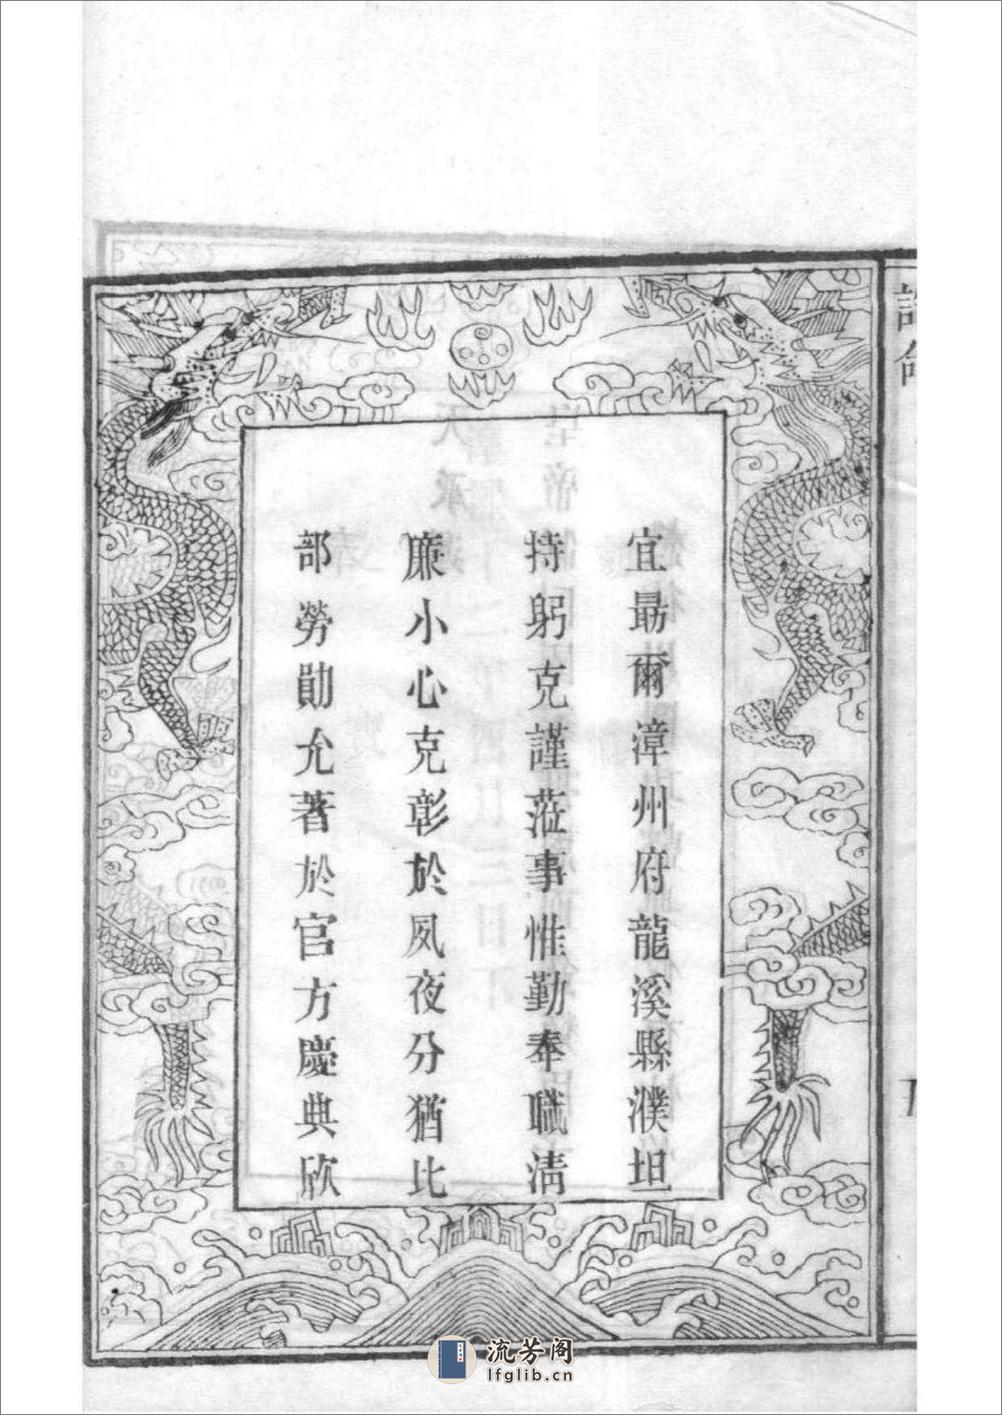 宜朂爾漳州府龍溪縣濮坦
持躬克謹蒞事惟勤奉職淸
廉小心克彰於夙夜分猶比
部勞勛允著於官方慶典欣
流芳阁
lfglib.cn